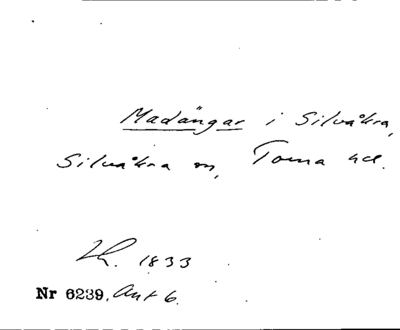 Madängar i Silvåkra,
Silvåkra sn, Torna hd.
1833
Nr 6239. Ant 6.